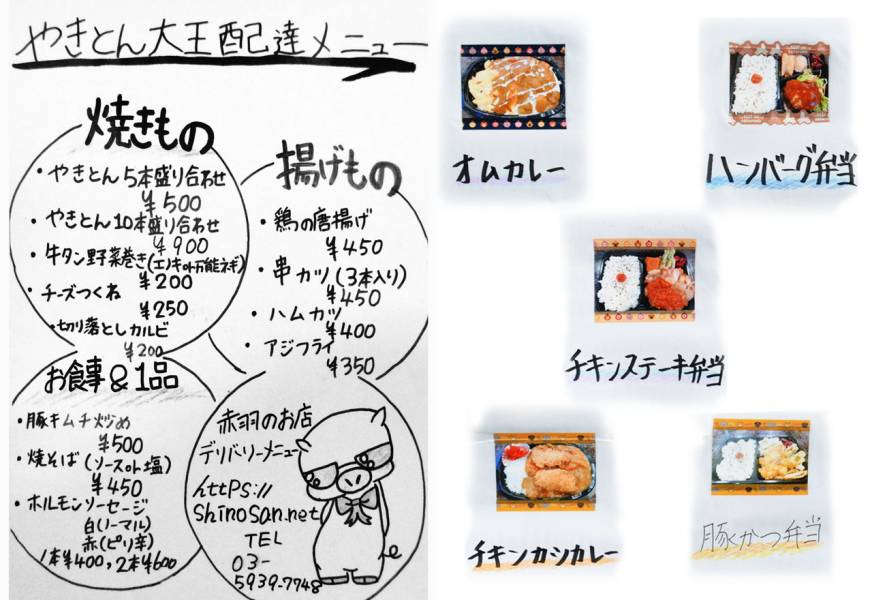 やきとん大王配達メニュー
焼きもの
・やきとん5本盛り合わせ
¥500
・やきとん10本盛り合わせ
¥900
・牛タン野菜巻き(エノキor万能ネギ)
¥200
・チーズつくね
¥250
・切り落としカルビ
¥200
揚げもの
・鶏の唐揚げ
¥450
・串カツ(3本入り)
¥450
・ハムカツ
¥400
・アジフライ
¥350
お食事&1品
・豚キムチ炒め
¥500
・焼そば(ソースor塩)
¥450
・ホルモンソーセージ
白(ノーマル)
赤(ピリ辛)
1本¥400,2本¥600
赤羽のお店
デリバリーメニュー
https://
shinosan.net
TEL
03-
5939-7748
オムカレー
ハンバーグ弁当
チキンステーキ弁当
チキンカツカレー
豚かつ弁当